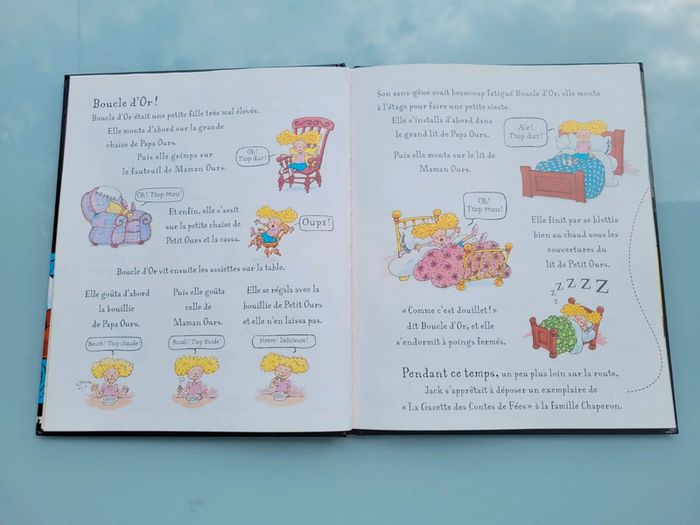 Boucle d'Or!
Boucle d'Or était une petite fille très mal élevée.
Elle monta d'abord sur la grande
chaise de Papa Ours.
Oh!
Trop dur!
Puis elle grimpa sur
le fauteuil de Maman Ours.
Oh! Trop mou!
Et enfin, elle s'assit
sur la petite chaise de
Petit Ours et la cassa.
Oups!
Boucle d'Or vit ensuite les assiettes sur la table.
Elle goûta d'abord
la bouillie
de Papa Ours.
Beuh! Trop chaude!
Puis elle goûta
celle de
Maman Ours.
Beuh! Trop froide!
Elle se régala avec la
bouillie de Petit Ours
et elle n'en laissa pas.
Hmm! Délicieuse!
Son sans-gêne avait beaucoup fatigué Boucle d'Or, elle monta
à l'étage pour faire une petite sieste.
Elle s'installa d'abord dans
le grand lit de Papa Ours.
Aïe!
Trop dur!
Puis elle monta sur le lit de
Maman Ours.
Oh!
Trop mou!
Elle finit par se blottir
bien au chaud sous les
couvertures du
lit de Petit Ours.
zzZZZZ
« Comme c'est douillet! »
dit Boucle d'Or, et elle
s'endormit à poings fermés.
Pendant ce temps, un peu plus loin sur la route,
Jack s'apprêtait à déposer un exemplaire de
« La Gazette des Contes de Fées » à la famille Chaperon.